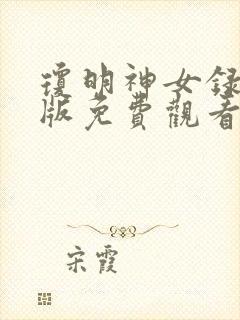 瓊明神女錄
版免費觀看
宋霞